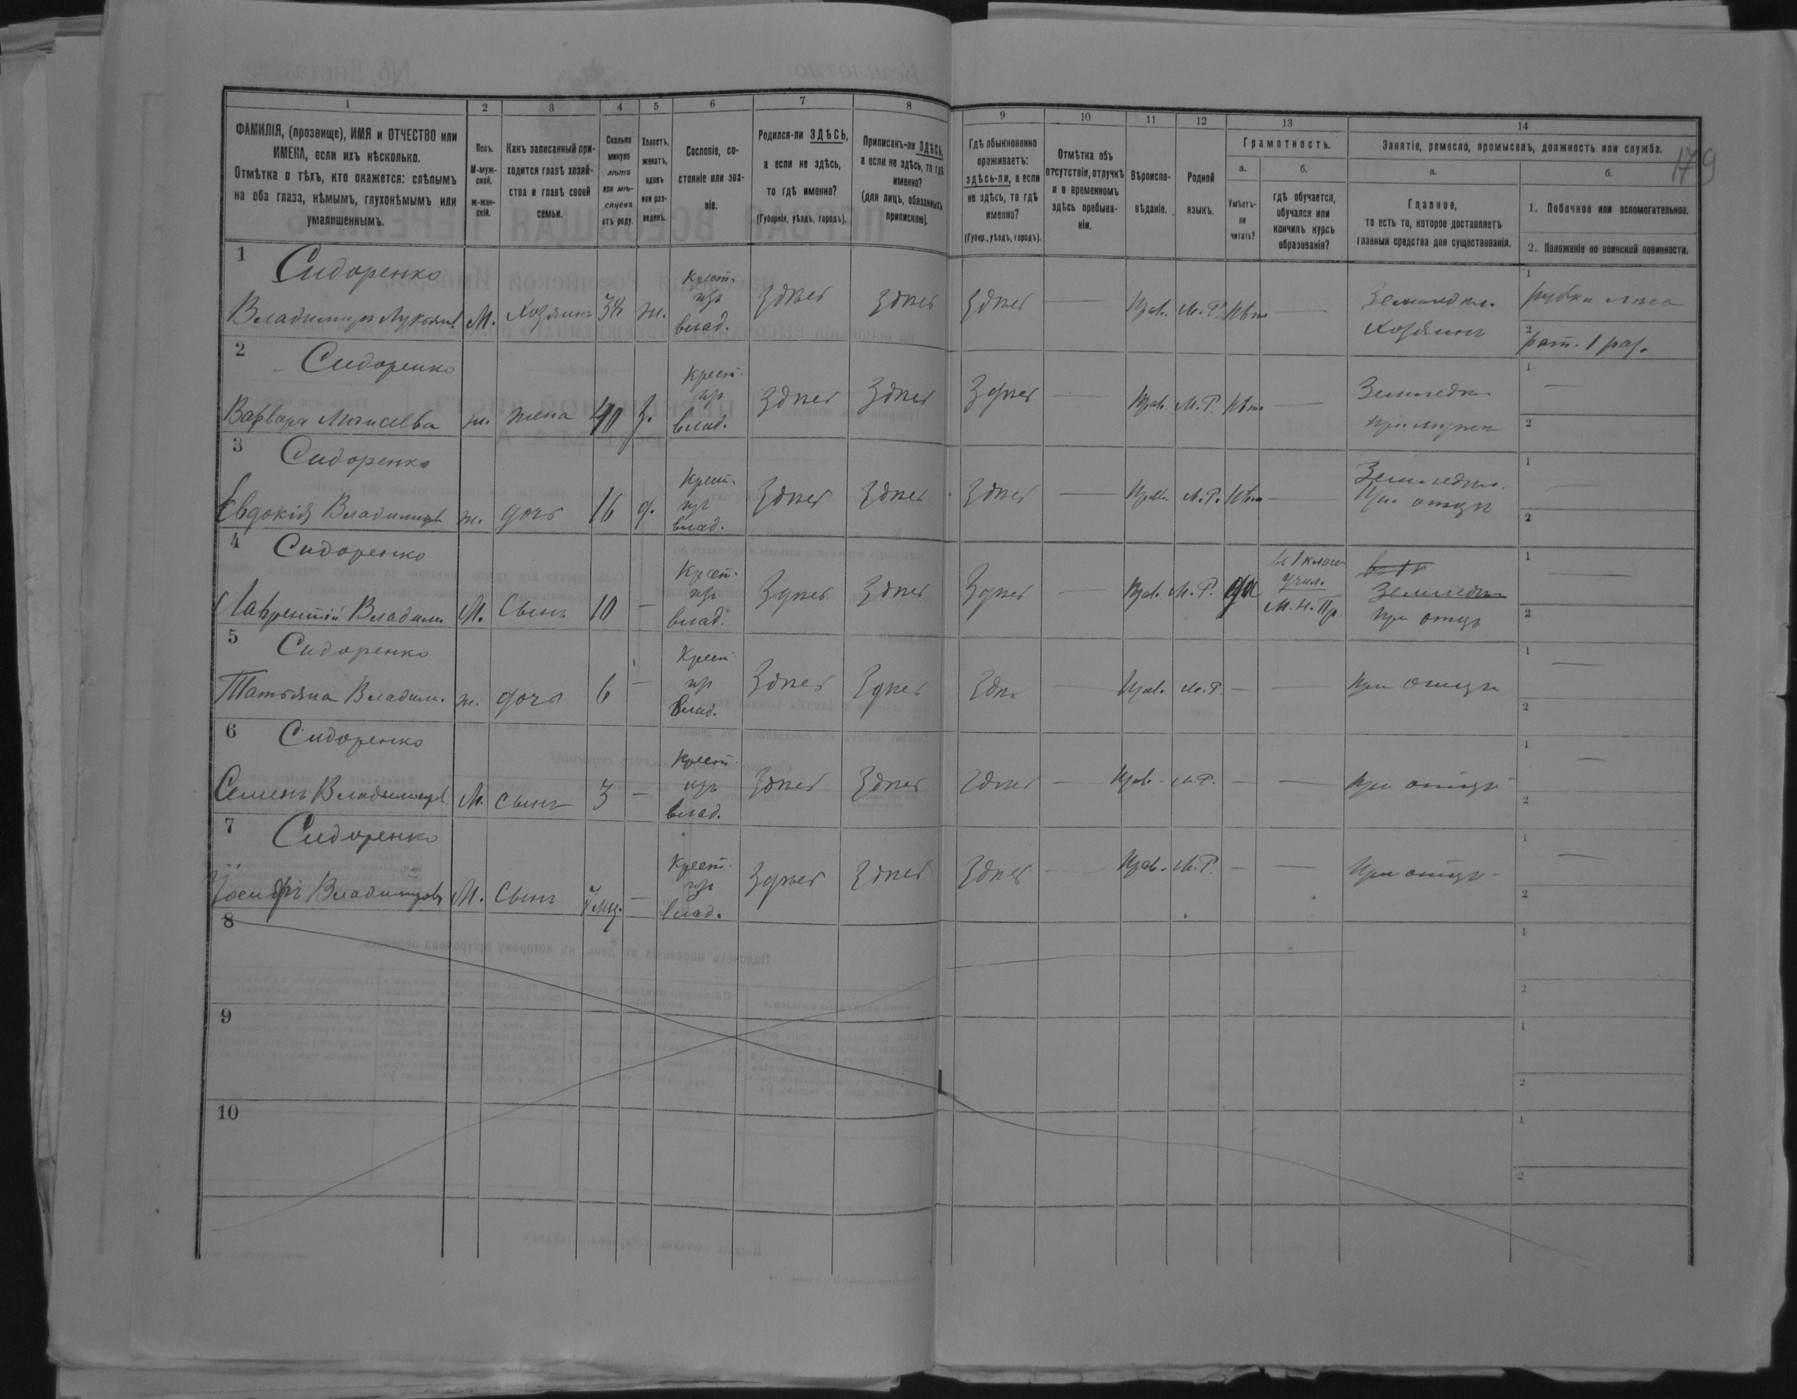 179
1 2 3 4 5 6 7 8 9 10 11 12 13 14
ФАМИЛІЯ, (прозвище), ИМЯ и ОТЧЕСТВО или
ИМЕНА, если ихъ нѣсколько.
Отмѣтка о тѣхъ, кто окажется: слѣпымъ
на оба глаза, нѣмымъ, глухонѣмымъ или
умалишеннымъ.
Полъ.
М-муж-
ской.
ж-жен-
скій.
Какъ записанный при-
ходится главѣ хозяй-
ства и главѣ своей
семьи.
Сколько
минуло
лѣтъ
или мѣ-
сяцевъ
отъ роду.
Холостъ,
женатъ,
вдовъ
или раз-
веденъ.
Сословіе, со-
стояніе или зва-
ніе.
Родился-ли ЗДѢСЬ,
а если не здѣсь,
то гдѣ именно?
(Губернія, уѣздъ, городъ).
Приписанъ-ли ЗДѢСЬ,
а если не здѣсь, то гдѣ
именно?
(для лицъ, обязанныхъ
припиской).
Гдѣ обыкновенно
проживаетъ:
здѣсь-ли, а если
не здѣсь, то гдѣ
именно?
(Губер., уѣздъ, городъ).
Отмѣтка объ
отсутствіи, отлучкѣ
и о временномъ
здѣсь пребыва-
ніи.
Вѣроиспо-
вѣданіе.
Родной
языкъ.
Грамотность.
а.
Умѣетъ-
ли
читать?
б.
гдѣ обучается,
обучался или
кончилъ курсъ
образованія?
Занятіе, ремесло, промыселъ, должность или служба.
а.
Главное,
то есть то, которое доставляетъ
главныя средства для существованія.
б.
1. Побочное или вспомогательное.
2. Положеніе по воинской повинности.
1 Сидоренко
Владимиръ Лукьянов М. Хозяинъ 34 ж. Крест. изъ влад. Здѣсь Здѣсь Здѣсь — Прав. М.Р. Нѣт — Земледѣл. Хозяинъ
1 рубка лѣса
2 рат. 1 раз.
2 Сидоренко
Варвара ж. жена 40 з. Крест. изъ влад. Здѣсь Здѣсь Здѣсь — Прав. М.Р. Нѣт — Земледѣл. при мужѣ
1 —
2
3 Сидоренко
Евдокія Владимиров ж. дочь 16 д. Крест. изъ влад. Здѣсь Здѣсь Здѣсь — Прав. М.Р. Нѣт — Земледѣл. При отцѣ
1 —
2
4 Сидоренко
Лаврентій Владим. М. Сынъ 10 — Крест. изъ влад. Здѣсь Здѣсь Здѣсь — Прав. М.Р. да въ 1 клас. учил. М.Н.Пр. Земледѣл при отцѣ
1 —
2
5 Сидоренко
Татьяна Владим. ж. дочь 6 — Крест. изъ Влад. Здѣсь Здѣсь Здѣс — Прав. М.Р. — — При отцѣ
1 —
2
6 Сидоренко
Семенъ Владимиров. М. сынъ 3 — Крест. изъ влад. Здѣсь Здѣсь Здѣсь — Прав. М.Р. — — При отцѣ
1 —
2
7 Сидоренко
Іосифъ Владимиров М. Сынъ 7 мц. — Крест. изъ влад. Здѣсь Здѣсь Здѣсь — Прав. М.Р. — — При отцѣ
1 —
2
8
1
2
9
1
2
10
1
2